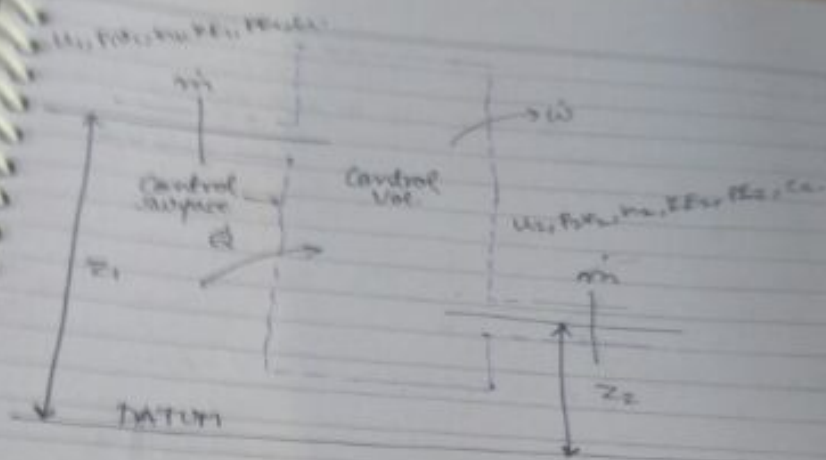 u₁, P₁v₁, h₁, KE₁, PE₁,
ṁ
→ ẇ
Control
Surface
Control
Vol.
Q̇
u₂, P₂v₂, h₂, KE₂, PE₂,
z₁
ṁ
z₂
DATUM